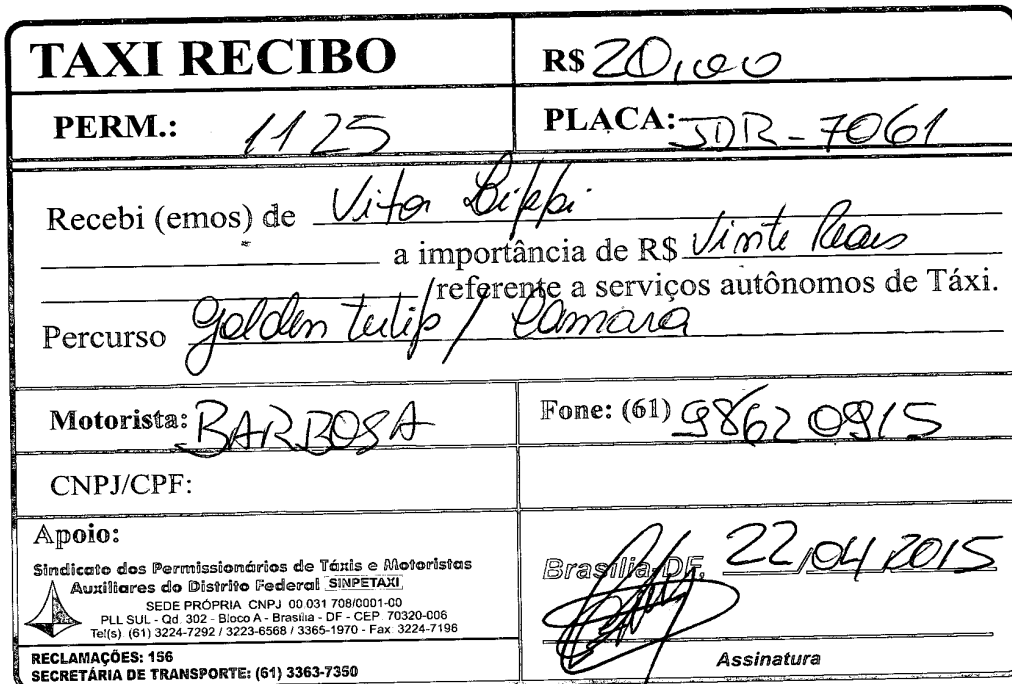 TAXI RECIBO
R$ 20,00
PERM.: 1125
PLACA: JDR-7061
Recebi (emos) de Vitor Lippi
a importância de R$ Vinte Reais
referente a serviços autônomos de Táxi.
Percurso Golden tulip / Câmara
Motorista: BARBOSA
Fone: (61) 98620915
CNPJ/CPF:
Apoio:
Sindicato dos Permissionários de Táxis e Motoristas
Auxiliares do Distrito Federal SINPETAXI
SEDE PRÓPRIA CNPJ 00.031 708/0001-00
PLL SUL - Qd. 302 - Bloco A - Brasília - DF - CEP. 70320-006
Tel(s). (61) 3224-7292 / 3223-6568 / 3365-1970 - Fax: 3224-7196
RECLAMAÇÕES: 156
SECRETÁRIA DE TRANSPORTE: (61) 3363-7350
Brasília, DF, 22/04/2015
Assinatura